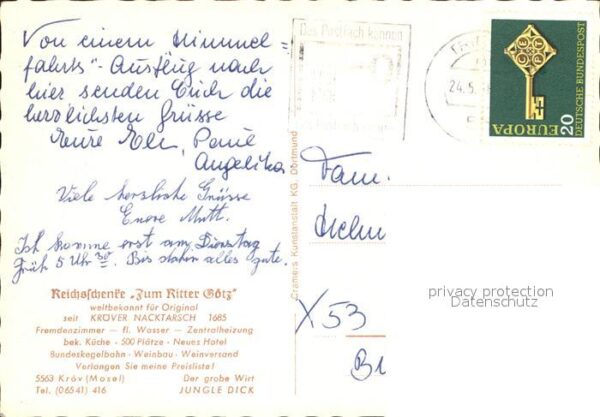 Von einem Himmel=
fahrts"- Ausflug nach
hier senden Euch die
herzlichsten Grüsse
Eure Elli, Paul
Angelika
Viele herzliche Grüsse
Euere Mutti.
Ich komme erst am Dienstag
früh 5 Uhr 30. Bis dahin alles gute.
Reichsschenke „Zum Ritter Götz"
weltbekannt für Original
seit KRÖVER NACKTARSCH 1685
Fremdenzimmer — fl. Wasser — Zentralheizung
bek. Küche - 500 Plätze - Neues Hotel
Bundeskegelbahn - Weinbau - Weinversand
Verlangen Sie meine Preisliste!
5563 Kröv (Mosel) Der grobe Wirt
Tel. (06541) 416 JUNGLE DICK
Cramers Kunstanstalt KG, Dortmund
Das Postfach können
24.5.
CEPT
EUROPA
20
DEUTSCHE BUNDESPOST
Fam.
X53
B1
privacy protection
Datenschutz